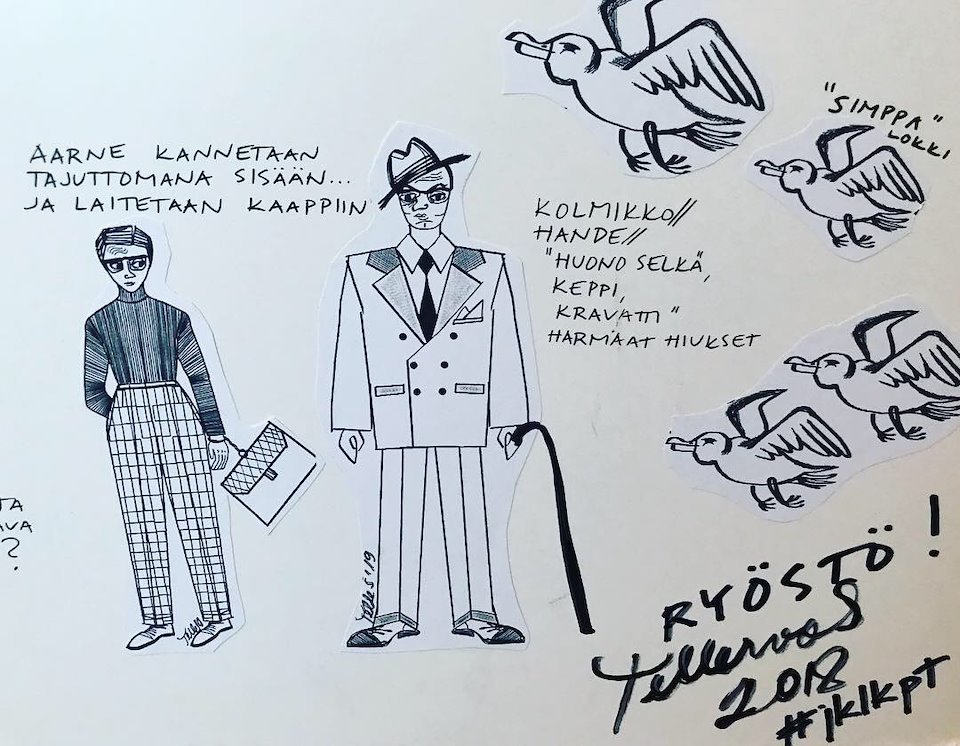 AARNE KANNETAAN
TAJUTTOMANA SISÄÄN...
JA LAITETAAN KAAPPIIN
KOLMIKKO//
HANDE//
"HUONO SELKÄ",
KEPPI,
KRAVATTI"
HARMAAT HIUKSET
"SIMPPA"
LOKKI
TA
AVA
?
RYÖSTÖ!
TellervoS
2018
#jklkpt